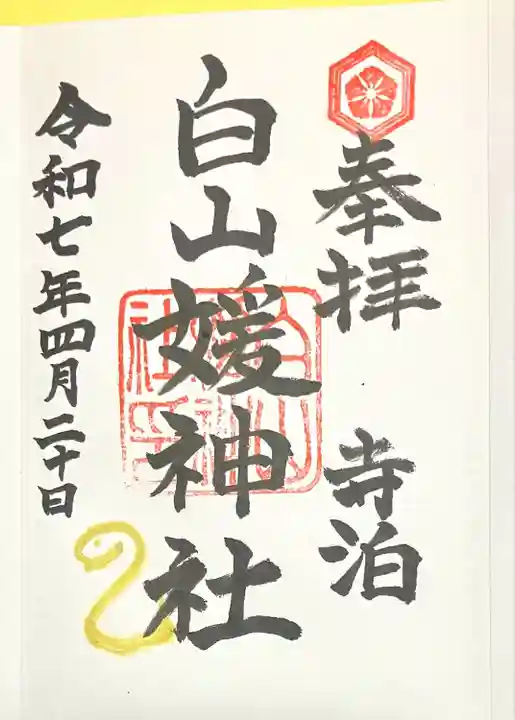 奉拝 寺泊
白山媛神社
令和七年四月二十日